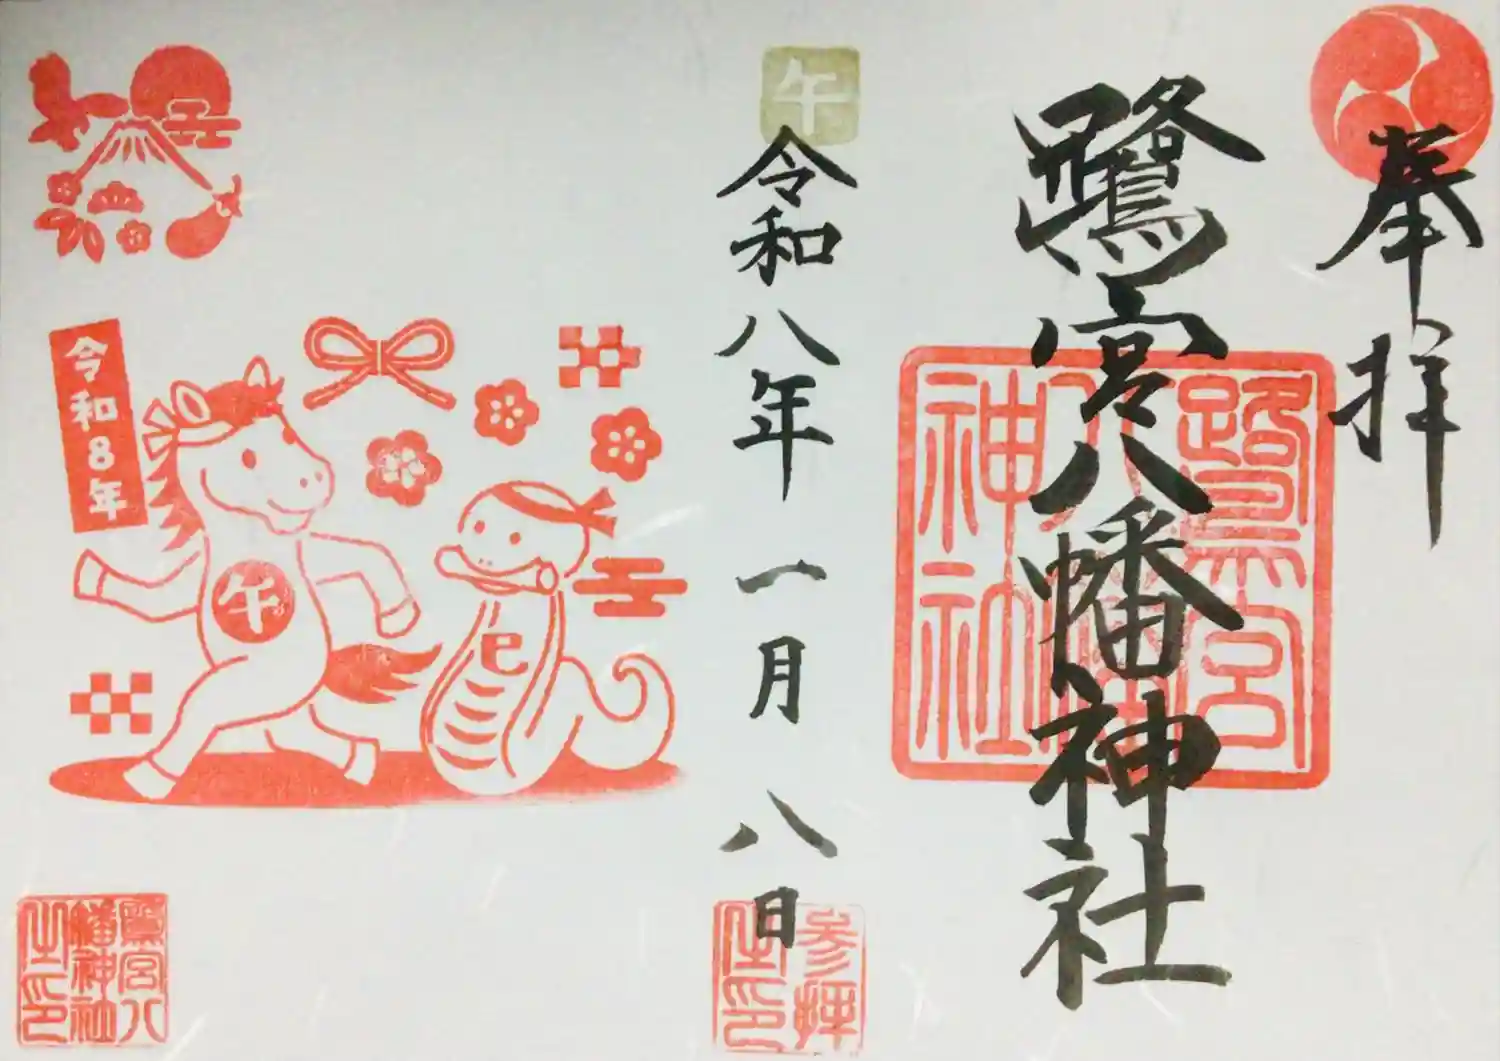 奉拝
鷺宮八幡神社
鷺宮八幡神社
午
令和八年 一月 八日
参拝
之印
令和8年
午
巳
鷺宮八
幡神社
之印